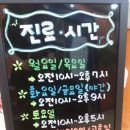 진료·시간
월요일/목요일
오전10시~오후7시
화요일/금요일(야간)
오전10시~오후9시
토요일
오전10시~오후